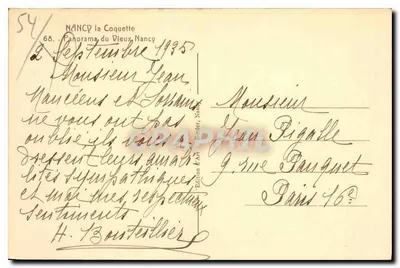 54/
NANCY la Coquette
68. - Panorama du Vieux Nancy
2 Septembre 1935
Monsieur Jean
Nancéens et Lorrains
ne vous ont pas
oublié ils vous a-
dressent leurs amabi-
lités sympathiques
et moi mes respectueux
sentiments
H. Bouteillier
Monsieur
Jean Pigalle
9. rue Pauquet
Paris 16e